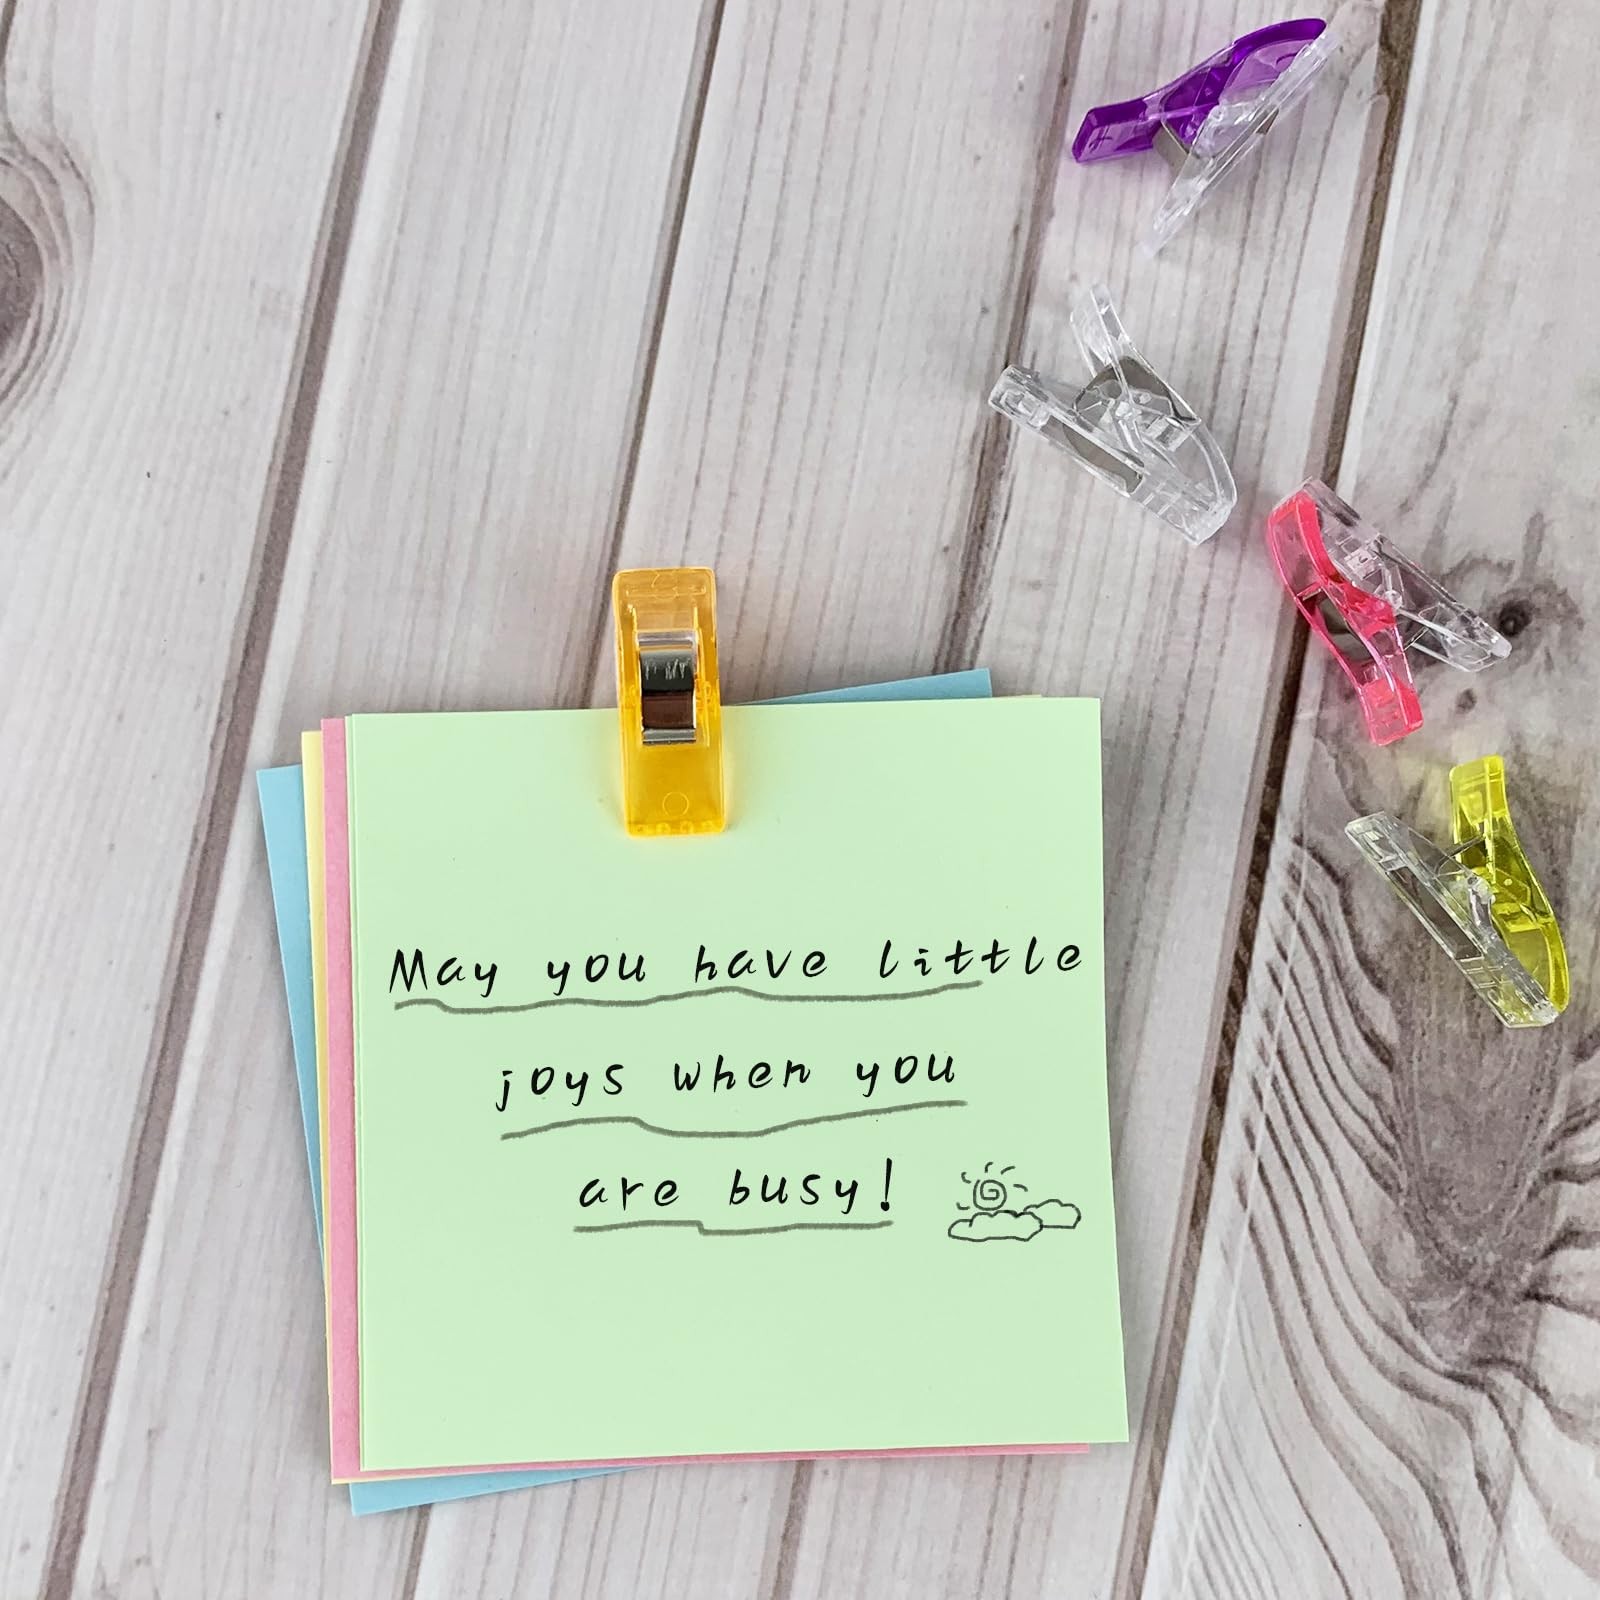 May you have little
joys when you
are busy!